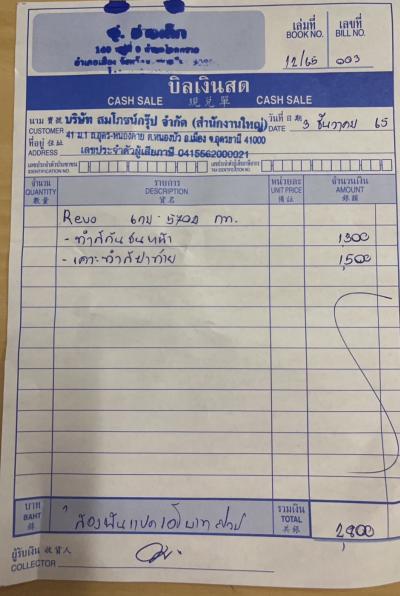 เล่มที่ เลขที่
BOOK NO. BILL NO.
12/65 003
บิลเงินสด
CASH SALE 現兌單 CASH SALE
นาม บริษัท สมโภชน์กรุ๊ป จำกัด (สำนักงานใหญ่) วันที่ 3 ธันวาคม 65
CUSTOMER 41 ม.1 ถ.อุดร-หนองคาย ต.หนองบัว อ.เมือง จ.อุดรธานี 41000 DATE
ที่อยู่ 住址
ADDRESS เลขประจำตัวผู้เสียภาษี 0415562000021
เลขประจำตัวประชาชน เลขประจำตัวผู้เสียภาษีอากร
IDENTIFICATION NO. TAX IDENTIFICATION NO.
จำนวน รายการ หน่วยละ จำนวนเงิน
QUANTITY DESCRIPTION UNIT PRICE AMOUNT
數量 貨名 備註 銀額
Revo กท.
- ทำสีกันชนหน้า 1,300
- เคาะทำสีฝาท้าย 1,500
บาท รวมเงิน
BAHT สองพันแปดร้อยบาทถ้วน TOTAL 2,800
銖 共銀
ผู้รับเงิน 收貨人
COLLECTOR